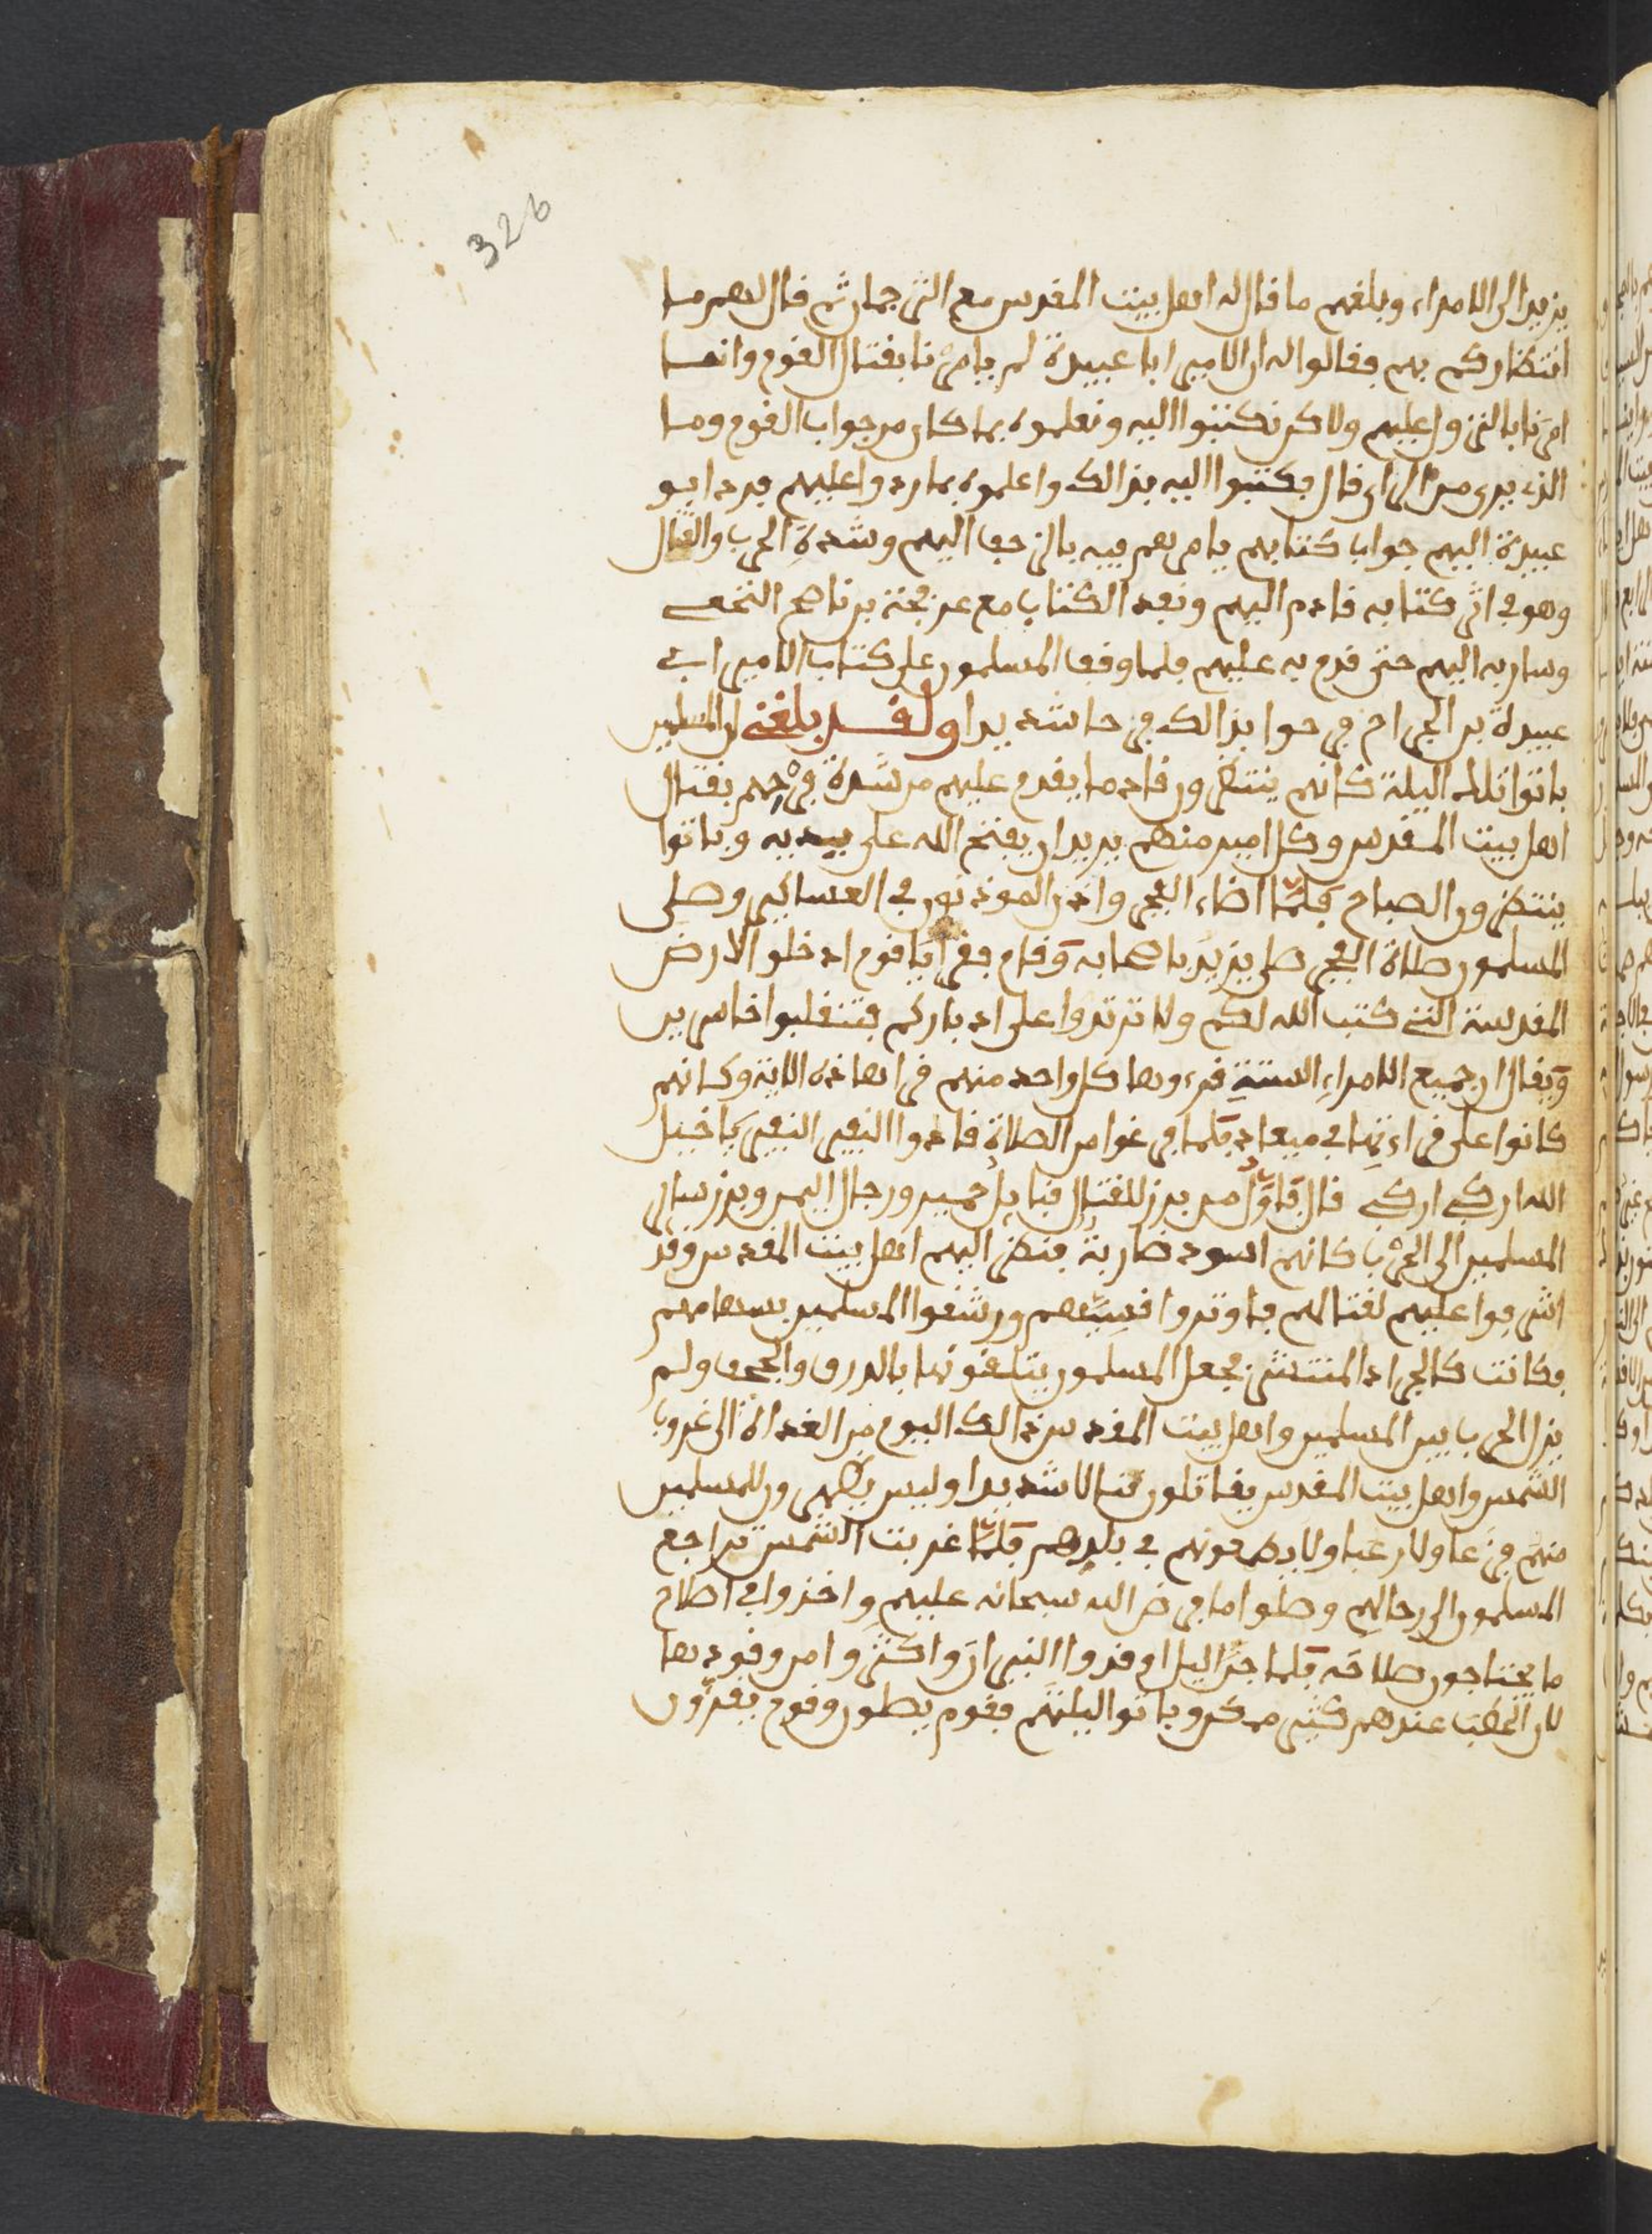 326
يزيد الى الامراء وبلغهم ما قال له اهل بيت المقدس مع الترجمان ثم قال لهم ما
انتظاركم بهم فقالوا له ان الامير ابا عبيدة لم يامرنا بقتال القوم وانما
امرنا بالنزول عليهم ولاكن نكتبوا اليه ونعلموه بما كان من جواب القوم وما
الذي يرى من الراي قال فكتبوا اليه بذالك واعلموه بما ردوا عليهم فرد ابو
عبيدة اليهم جواب كتابهم يامرهم فيه بالزحف اليهم وشدة الحرب والقتال
وهو في اثر كتابه قادم اليهم ونفد الكتاب مع عرفجة بن ناصح النخعي
وسار به اليهم حتى قدم به عليهم فلما وقف المسلمون على كتاب الامير ابي
عبيدة بن الجراح فرحوا بذالك فرحا شديدا ولقد بلغني ان المسلمين
باتوا تلك اليلة كانهم ينتظرون قادما يقدم عليهم من شدة فرحهم بقتال
اهل بيت المقدس وكل امير منهم يريد ان يفتح الله على يديه وباتوا
ينتظرون الصباح فلما اضاء الفجر واذن الموذنون في العساكر وصلى
المسلمون صلاة الفجر صلى يزيد باصحابه وقام فقرا يا قوم ادخلوا الارض
المقدسة التي كتب الله لكم ولا ترتدوا على ادباركم فتنقلبوا خاسرين
ويقال ان جميع الامراء الستة قرءوها كل واحد منهم قرا هاذه الاية وكانهم
كانوا على قراءتها في ميعاد فلما فرغوا من الصلاة نادوا النفير النفير يا خيل
الله اركبي اركبي قال فاول من برز للقتال قبايل حمير ورجال اليمن وبرز ساير
المسلمين الى الحرب كانهم اسود ضارية فنظر اليهم اهل بيت المقدس وقد
اشرفوا عليهم لقتالهم فاوتروا قسيهم ورشقوا المسلمين بسهامهم
فكانت كالجراد المنتشر فجعل المسلمون يتلقونها بالدرق والحجف ولم
يزل الحرب بين المسلمين واهل بيت المقدس ذالك اليوم من الغداة الى غروب
الشمس واهل بيت المقدس يقاتلون قتالا شديدا وليس يظهرون للمسلمين
منهم فزعا ولا رعبا ولا يطمعونهم في بلدهم فلما غربت الشمس تراجع
المسلمون الى رحالهم وصلوا ما فرض الله سبحانه عليهم واخذوا في اصلاح
ما يحتاجون صلاحه فلما جن اليل اوقدوا النيران واكثروا من وقودها
لان الحطب عندهم كثير ممكن وباتوا ليلتهم فقوم يصلون وقوم يقرؤون